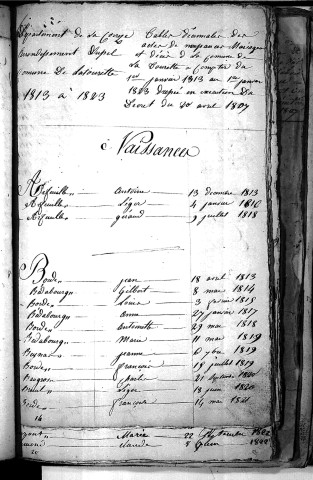 Département de la Corrèze
arrondissement D'ussel
Commune De Latourette
1813 à 1823
Table décennale des
actes de naissances Mariages
et décès de la Commune de
La Tourette a compter du
1er janvier 1813 au 1er janvier
1823 Dressée en execution Du
Decret du 20 avril 1807
Naissances
antoine 13 décembre 1813
Léger 4 janvier 1816
géraud 9 juillet 1818
Borde jean 18 avril 1813
Badabourg Gilbert 8 mai 1814
Borde 3 1815
Badabourg anne 27 janvier 1817
Borde antoinette 29 mai 1818
Badabourg Marie 11 mai 1819
jeanne 1819
Borde françois 19 juillet 1819
21 1820
Léger 18 juin 1820
Borde françois 14 mai 1821
14
Marie 22 1822
claude 8 1822